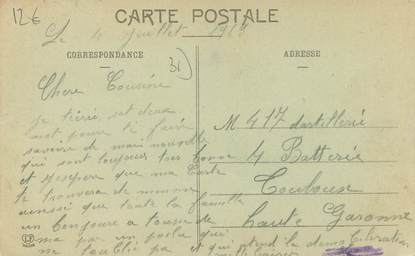 12€
CARTE POSTALE
Le 4 Juillet 1919
CORRESPONDANCE
31
ADRESSE
Chere Cousine
je sui deux
mot pour te faire
savoire de mais nouvelle
qui sont toujour tres bonne
et j'espere que ma Carte
te trouvera de meme
ainssi que toute la famille
un Bonjoure a tousse de
ma par un poilu qui
ne t'oublie pa et qui atend la
M 417 dartillerié
4 Batterié
Toulouse
haute Garonne